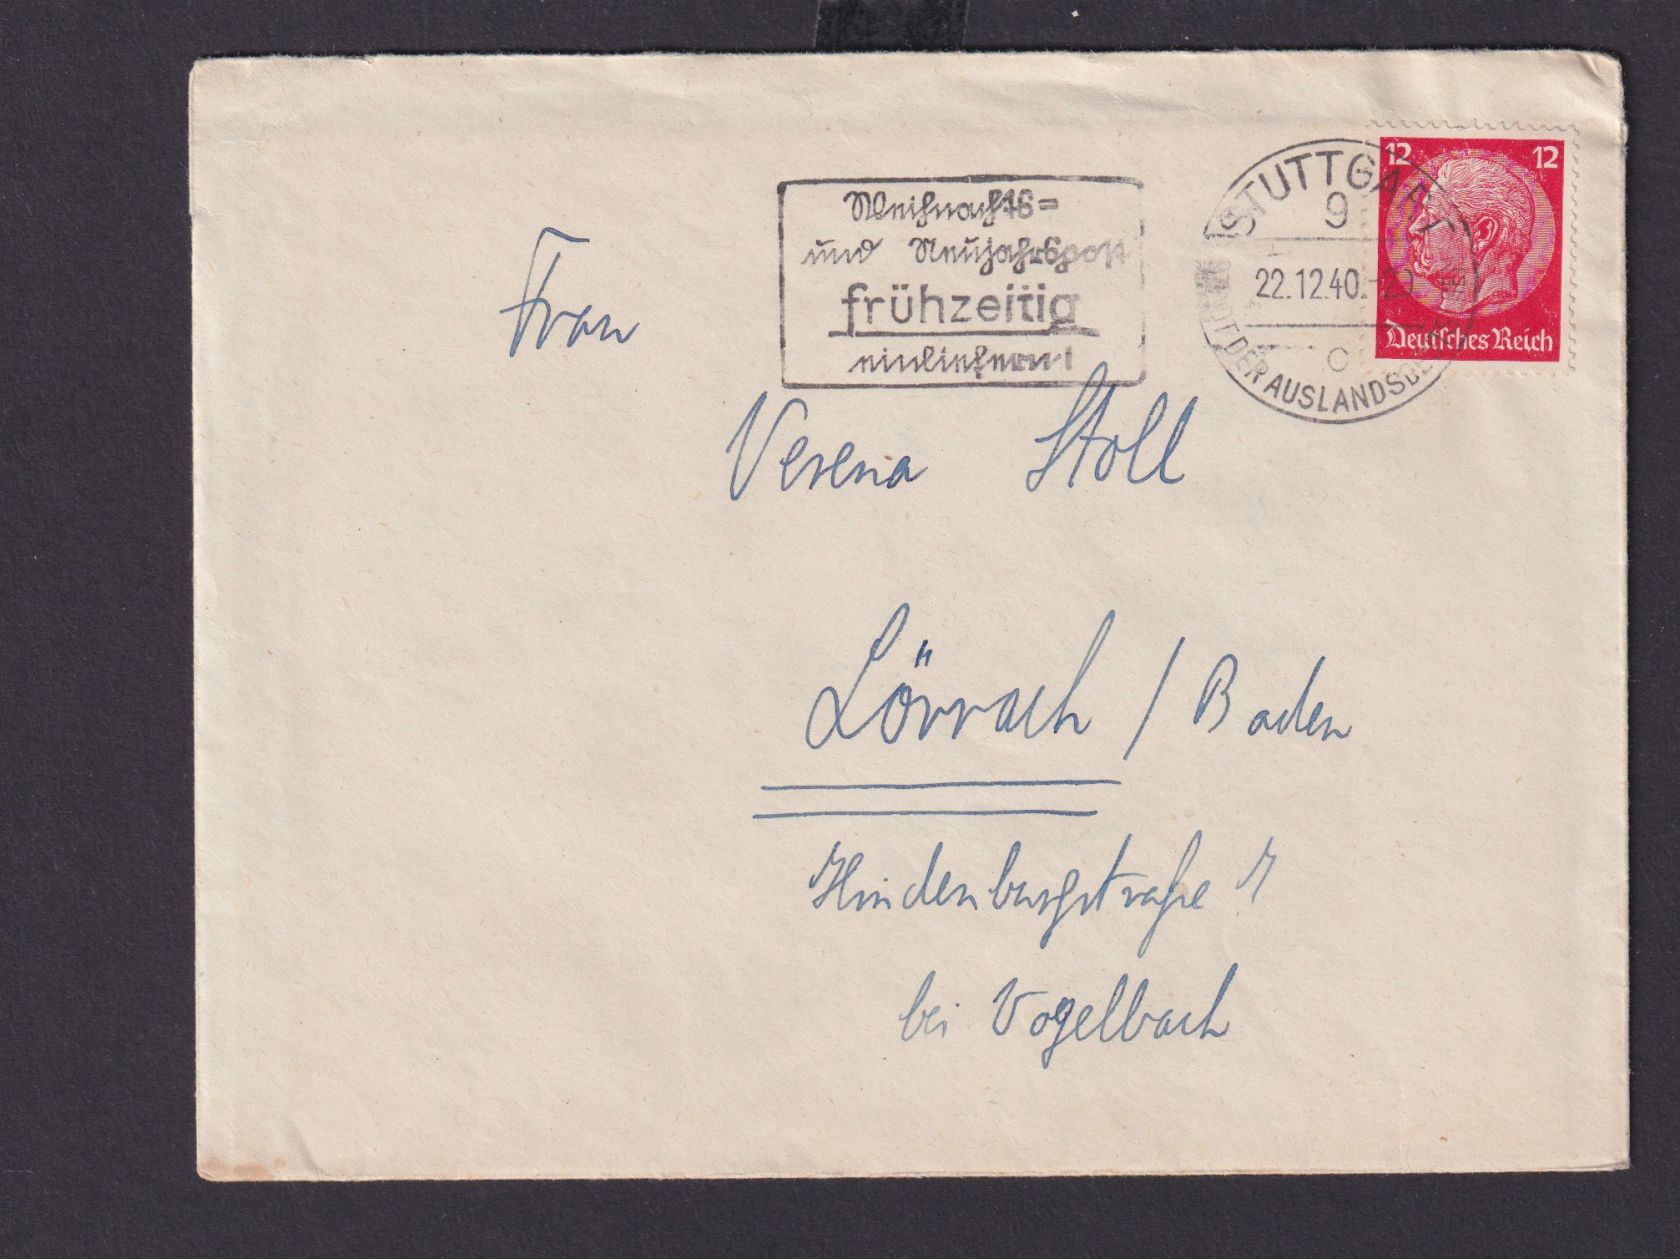 Weihnachts=
und Neujahrspost
frühzeitig
einliefern!
STUTTGART
9
22.12.40.-20
c
DER AUSLANDSDE
12 12
Deutsches Reich
Frau
Verena Stoll
Lörrach / Baden
Hindenburgstraße
bei Vogelbach